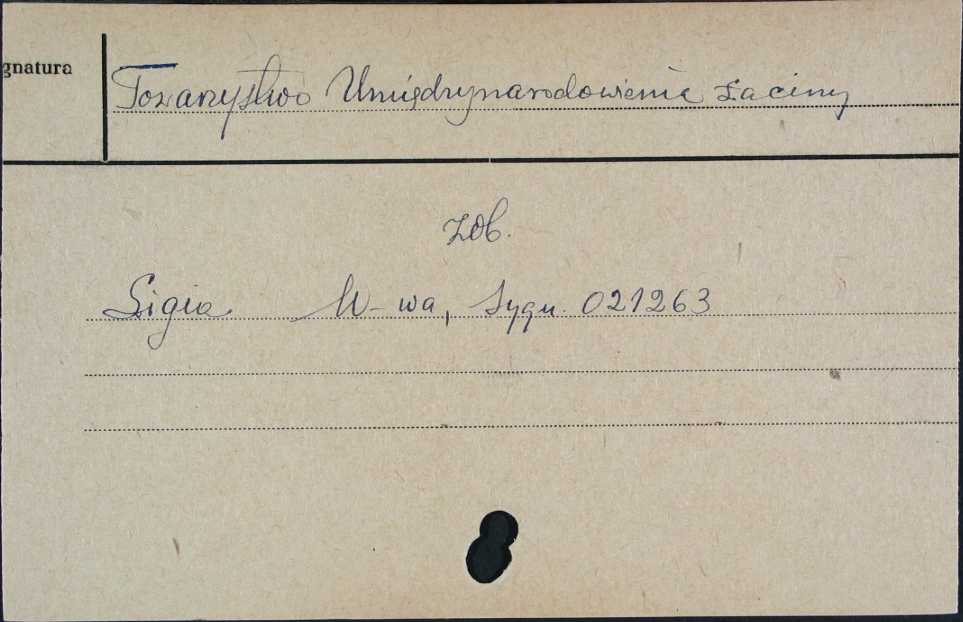 gnatura
Towarzystwo Umiędzynarodowienia Łaciny
zob.
Ligia W-wa, Sygn. 021263